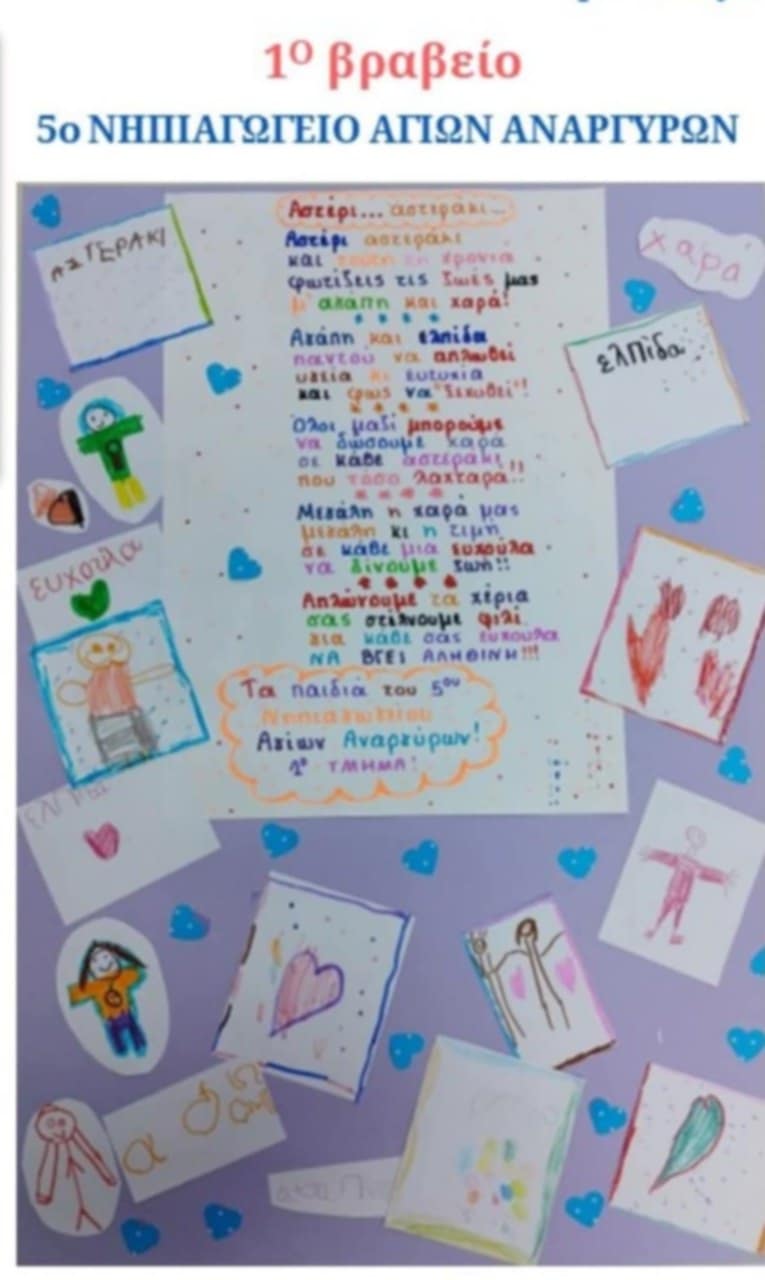 1ο βραβείο
5ο ΝΗΠΙΑΓΩΓΕΙΟ ΑΓΙΩΝ ΑΝΑΡΓΥΡΩΝ
Αστέρι... αστεράκι...
Αστέρι αστεράκι
και τούτη τη χρονιά
φωτίζεις τις ζωές μας
μ' αγάπη και χαρά!
Αγάπη και ελπίδα
παντού να απλωθεί
υγεία κι ευτυχία
και φως να ξεχυθεί!
Όλοι μαζί μπορούμε
να δώσουμε χαρά
σε κάθε αστεράκι
που τόσο λαχταρά!!
Μεγάλη η χαρά μας
μεγάλη κι η τιμή
σε κάθε μια ευχούλα
να δίνουμε ζωή!!
Απλώνουμε τα χέρια
σας στέλνουμε φιλί
για κάθε σας ευχούλα
ΝΑ ΒΓΕΙ ΑΛΗΘΙΝΗ!!!
Τα παιδιά του 5ου
Νηπιαγωγείου
Αγίων Αναργύρων!
1ο ΤΜΗΜΑ!
ΑΣΤΕΡΑΚΙ
χαρά
ελπίδα
ευχούλα